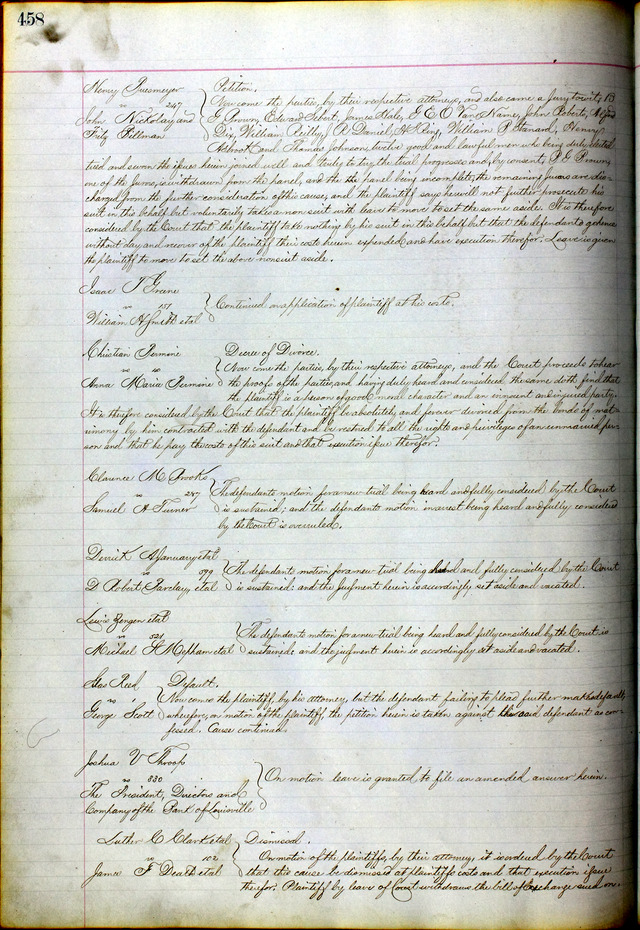 458
Henry Puesmeyer
vs 247
John Nickolay and
Fritz Pillman
Petition.
Now come the parties, by their respective attorneys, and also came a Jury towit, P.
G Brown, Edward Tebort, James Hale, E C O Van Name, John Roberts,
Dix, William Reilly, R Daniel, H King, William P Stanard, Henry
and Thomas Johnson, twelve good and lawful men who being duly elected
tried and sworn the issues herein joined well and truly to try, the trial progresses and, by consent, P. G Brown,
one of the Jurors, is withdrawn from the panel, and the the panel being incomplete, the remaining Jurors are dis=
charged from the further consideration of this cause; and the plaintiff says he will not further prosecute his
suit in this behalf but voluntarily takes a non suit with leave to move to set the same aside. It is therefore
considered by the Court that the plaintiff take nothing by his suit in this behalf but that the defendants go hence
without day and recover of the plaintiff their costs herein expended, and have execution therefor. Leave is given
the plaintiff to move to set the above nonsuit aside.
Isaac T Greene
vs 157
William H Smith et al
Continued on application of plaintiff at his costs.
Christian Permine
vs
Anna Maria Permine
Decree of Divorce.
Now come the parties, by their respective attorneys, and the Court proceeds to hear
the proofs of the parties, and having duly heard and considered the same doth find that
the plaintiff is a person of good moral character and an innocent and injured party.
It is therefore considered by the Court that the plaintiff be absolutely and forever divorced from the bonds of mat=
rimony by him contracted with the defendant and be restored to all the rights and privileges of an unmarried per=
son and that he pay the costs of this suit and that execution issue therefor.
Clarence M Brooks
vs 247
Samuel A Turner
The defendants motion for a new trial being heard and fully considered by the Court
is sustained; and the defendants motion in arrest being heard and fully considered
by the Court is overruled.
Derrick A January et al
vs 099
D Robert Barclay, et al
The defendants motion for a new trial being heard and fully considered by the Court
is sustained: and the Judgment herein is accordingly set aside and vacated.
Lewis Zengen et al
vs 521
Michael H Mepham et al
The defendants motion for a new trial being heard and fully considered by the Court is
sustained and the judgment herein is accordingly set aside and vacated.
Geo Reed
vs
George Scott
Default.
Now comes the plaintiff, by his attorney, but the defendant failing to plead further makes default;
wherefore, on motion of the plaintiff, the petition herein is taken against the said defendant as con=
fessed. Cause continued.
Joshua V Throop
vs 330
The President, Directors and
Company of the Bank of Louisville
On motion leave is granted to file an amended answer herein.
Luther C Clark et al
vs 102
James F Death et al
Dismissed.
On motion of the plaintiffs, by their attorney, it is ordered by the Court
that this cause be dismissed at plaintiffs costs and that execution issue
therefor. Plaintiff by leave of Court withdraws the bill of Exchange sued on.